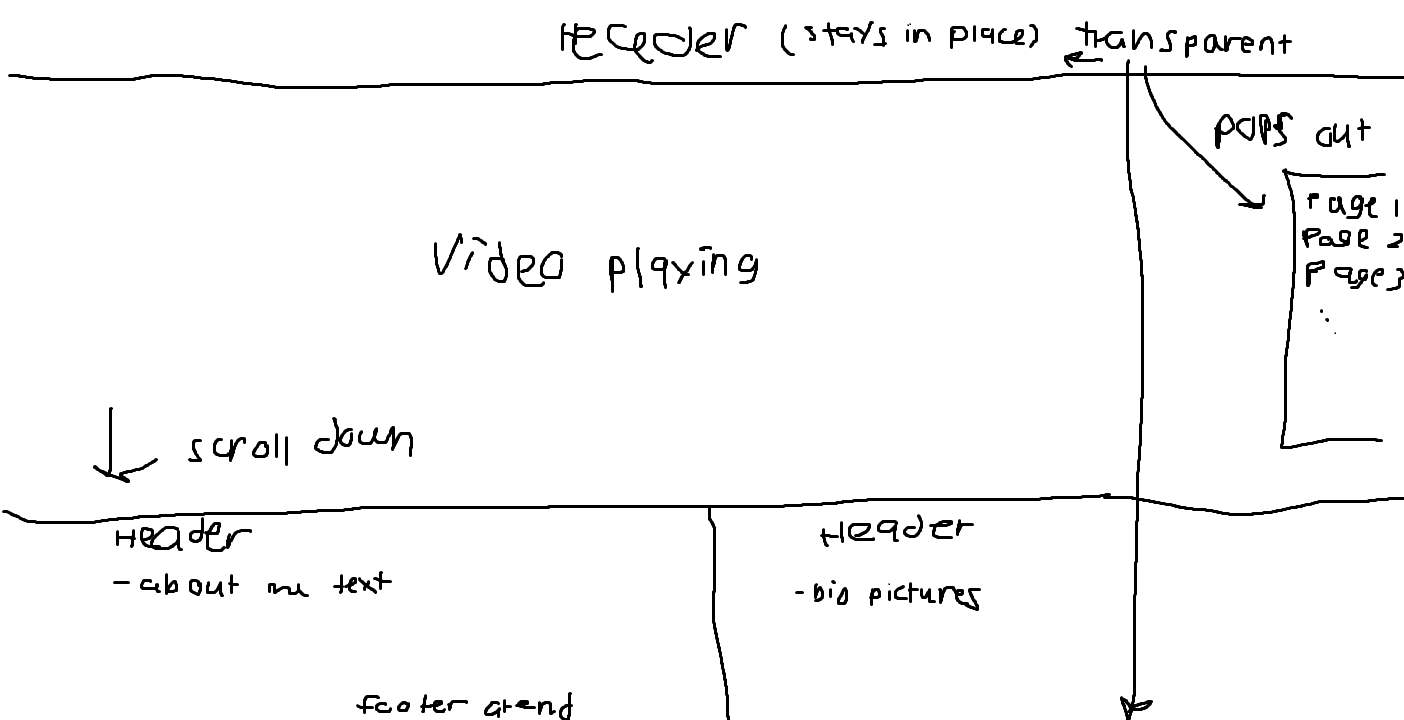 Header (stays in place) transparent
pops out
Page 1
Page 2
Page 3
Video playing
scroll down
Header
- about me text
Header
- bio pictures
footer at end